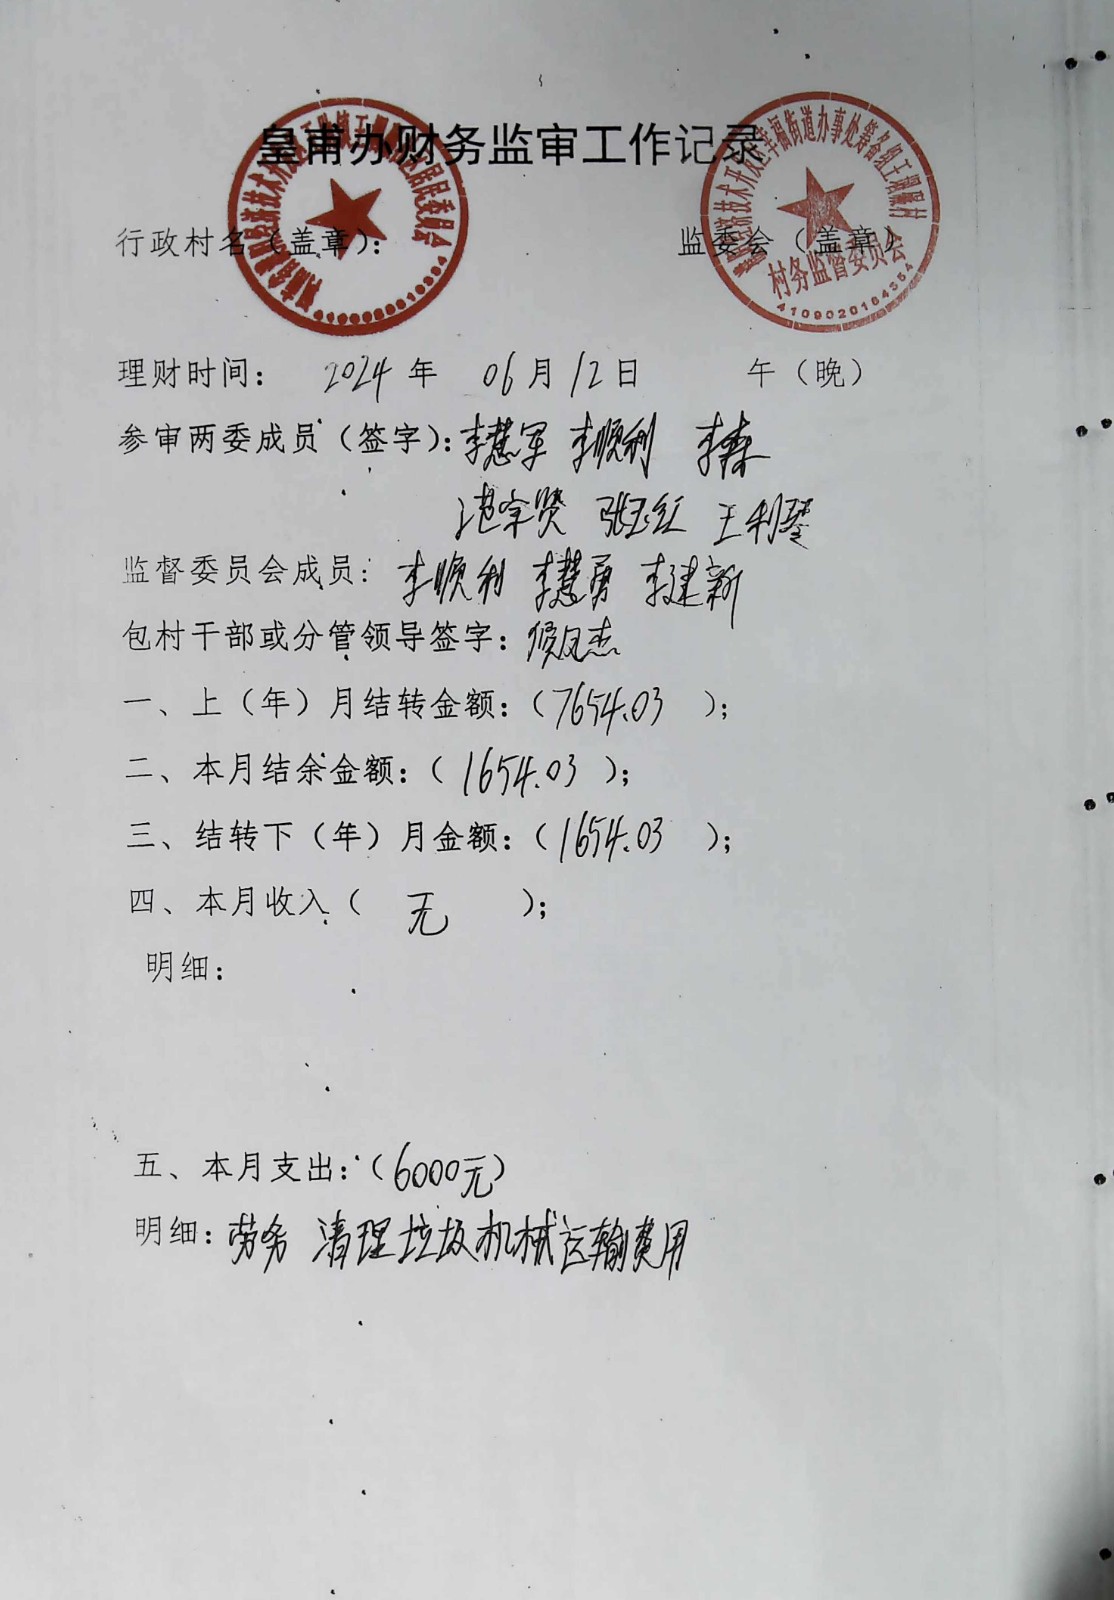 皇甫办财务监审工作记录
行政村名（盖章）：
监委会（盖章）
村务监督委员会
4109020164354
理财时间： 2024年 06月12日 午（晚）
参审两委成员（签字）：李慧军 李顺利 李森
张玉红 王利琴
监督委员会成员：李顺利 李慧勇 李建新
包村干部或分管领导签字：侯凤杰
一、上（年）月结转金额：（7654.03 ）；
二、本月结余金额：（1654.03 ）；
三、结转下（年）月金额：（1654.03 ）；
四、本月收入（ 无 ）；
明细：
五、本月支出：（6000元）
明细：劳务 清理垃圾机械运输费用